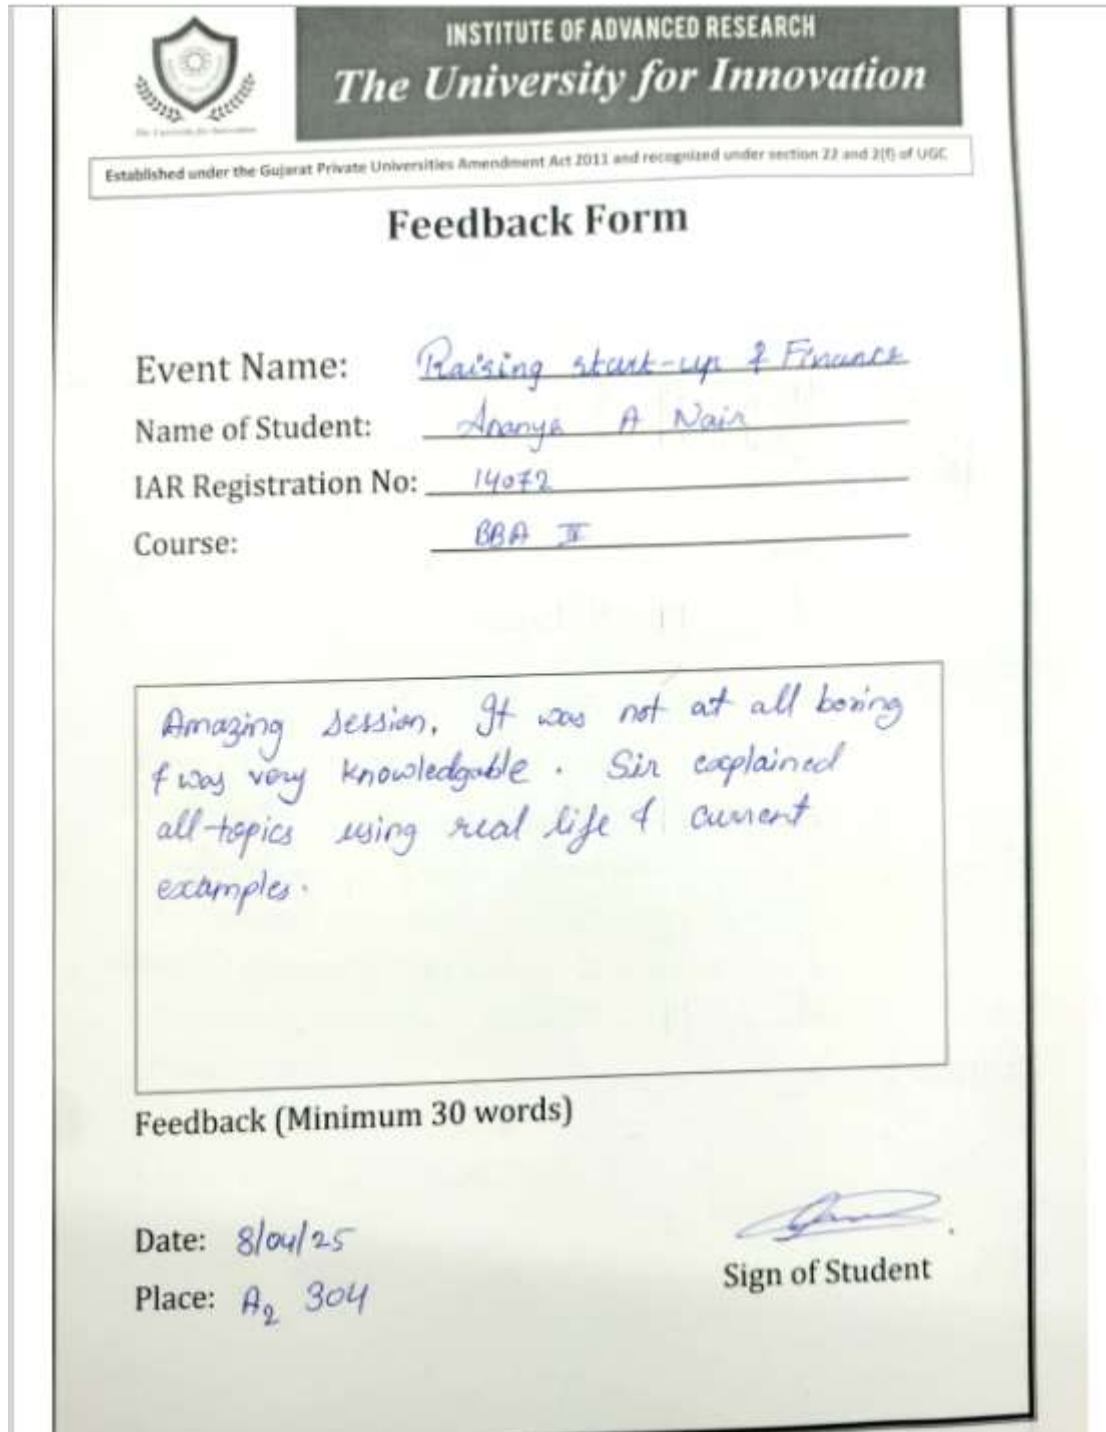 INSTITUTE OF ADVANCED RESEARCH
The University for Innovation
The University for Innovation
Established under the Gujarat Private Universities Amendment Act 2011 and recognized under section 22 and 2(f) of UGC
Feedback Form
Event Name: Raising start-up & Finance
Name of Student: Ananya A Nair
IAR Registration No: 14072
Course: BBA IV
Amazing session. It was not at all boring
& was very knowledgable. Sir explained
all topics using real life & current
examples.
Feedback (Minimum 30 words)
Date: 8/04/25
Sign of Student
Place: A2 304